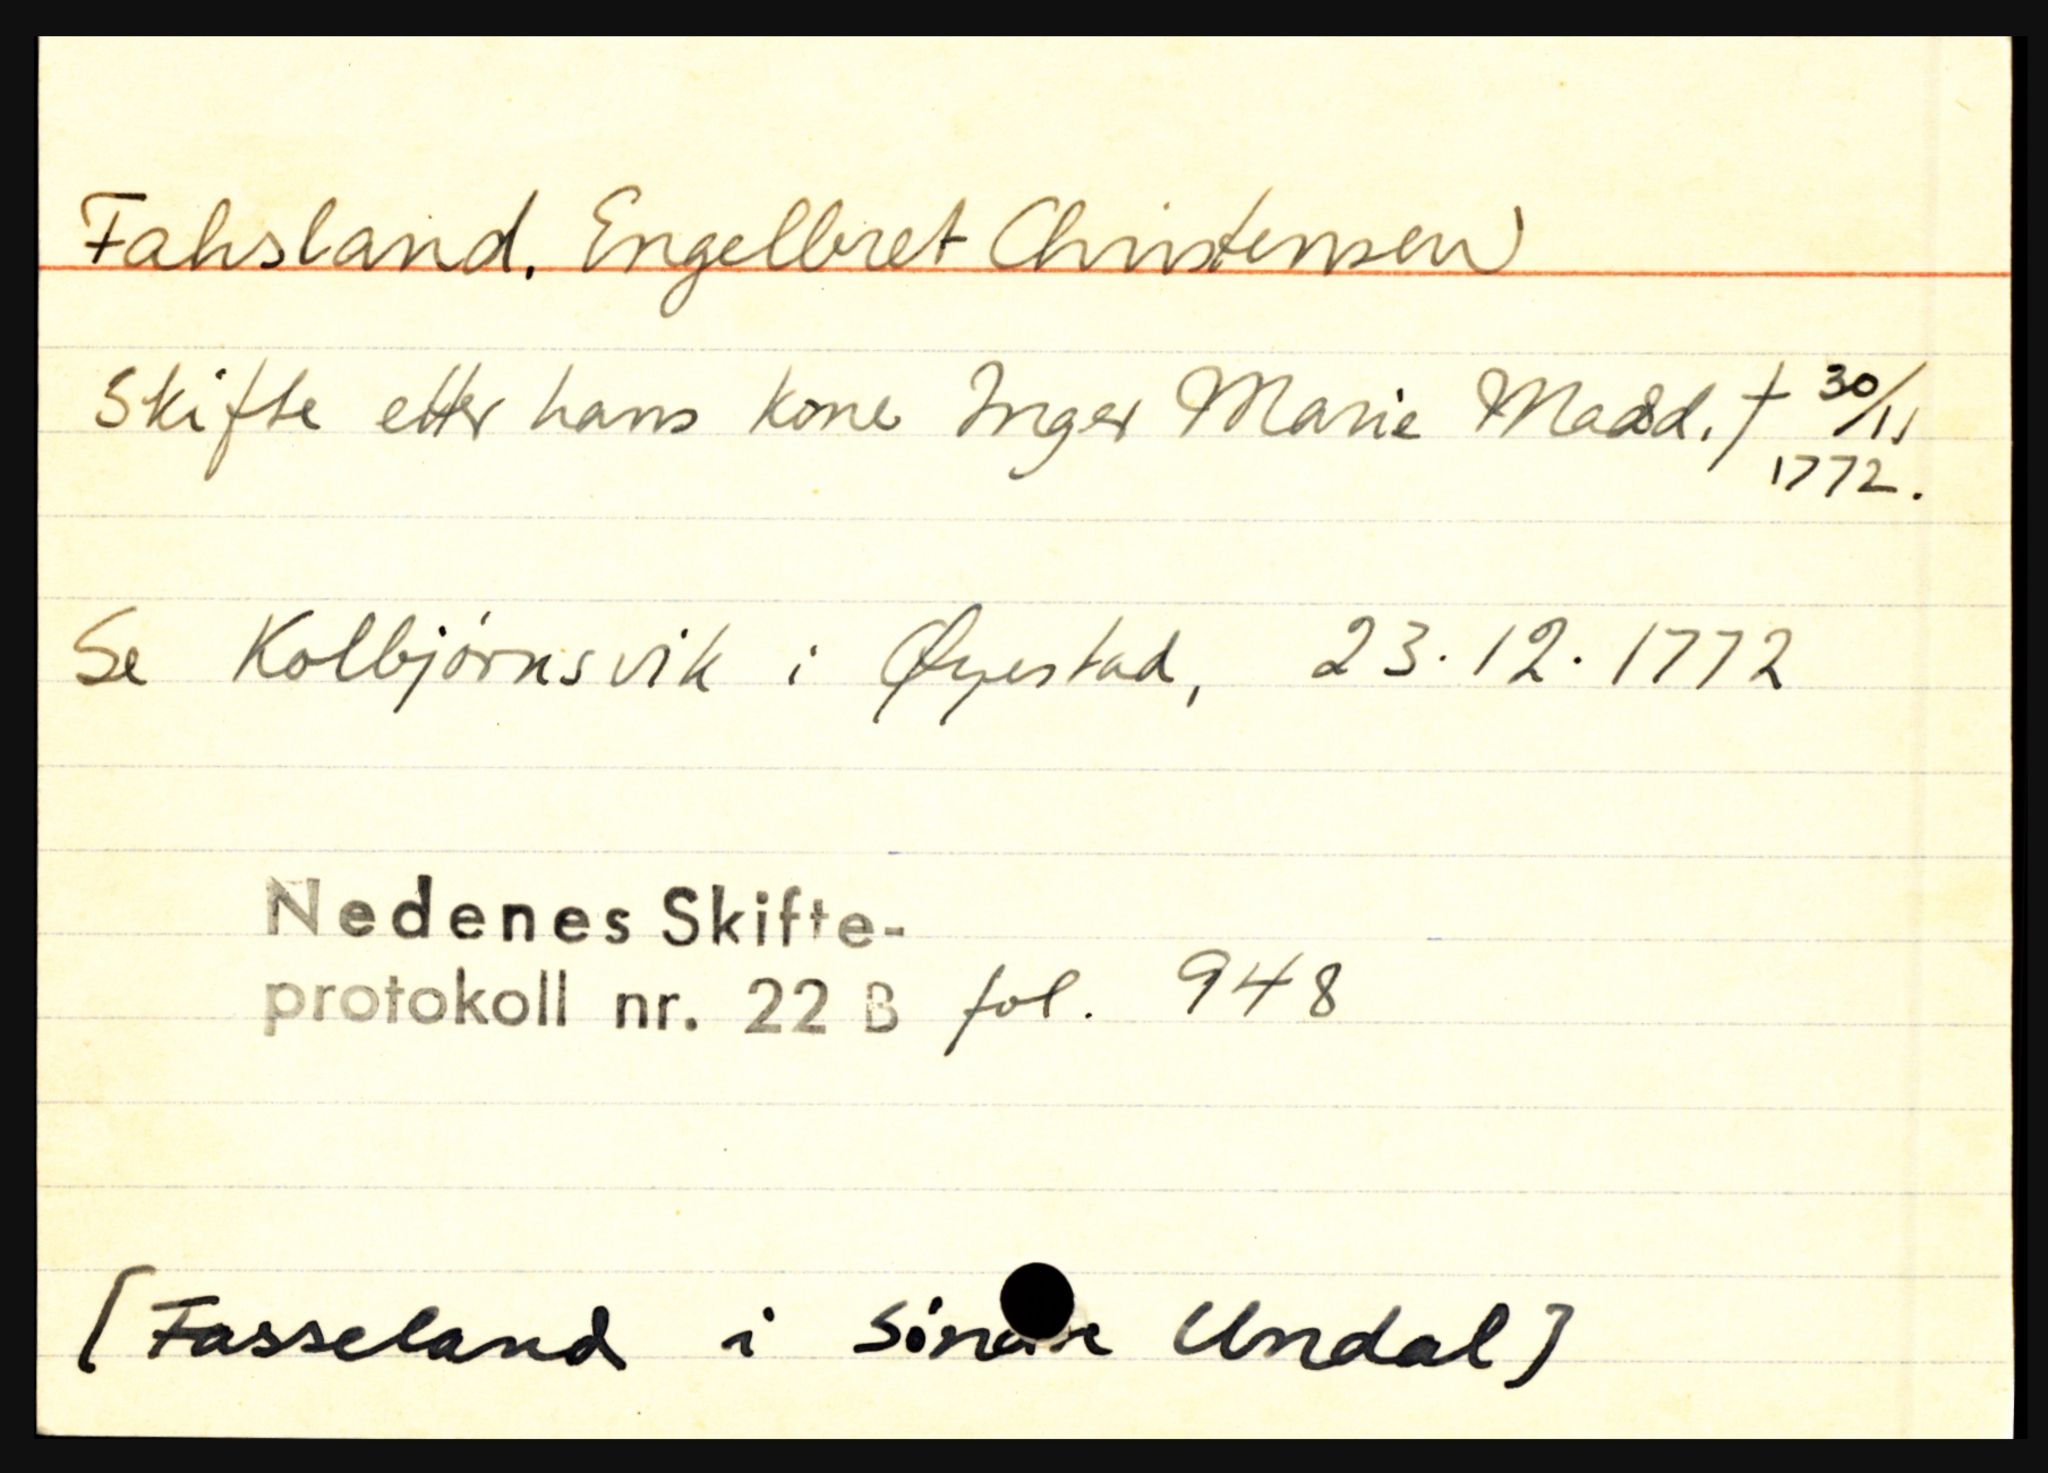 Fahsland. Engelbret Christensen
Skifte etter hans kone Inger Marie Madsd. † 30/11
1772.
Se Kolbjørnsvik i Øyestad, 23.12.1772
Nedenes Skifte-
protokoll nr. 22 B fol. 948
[Fasseland i Undal]